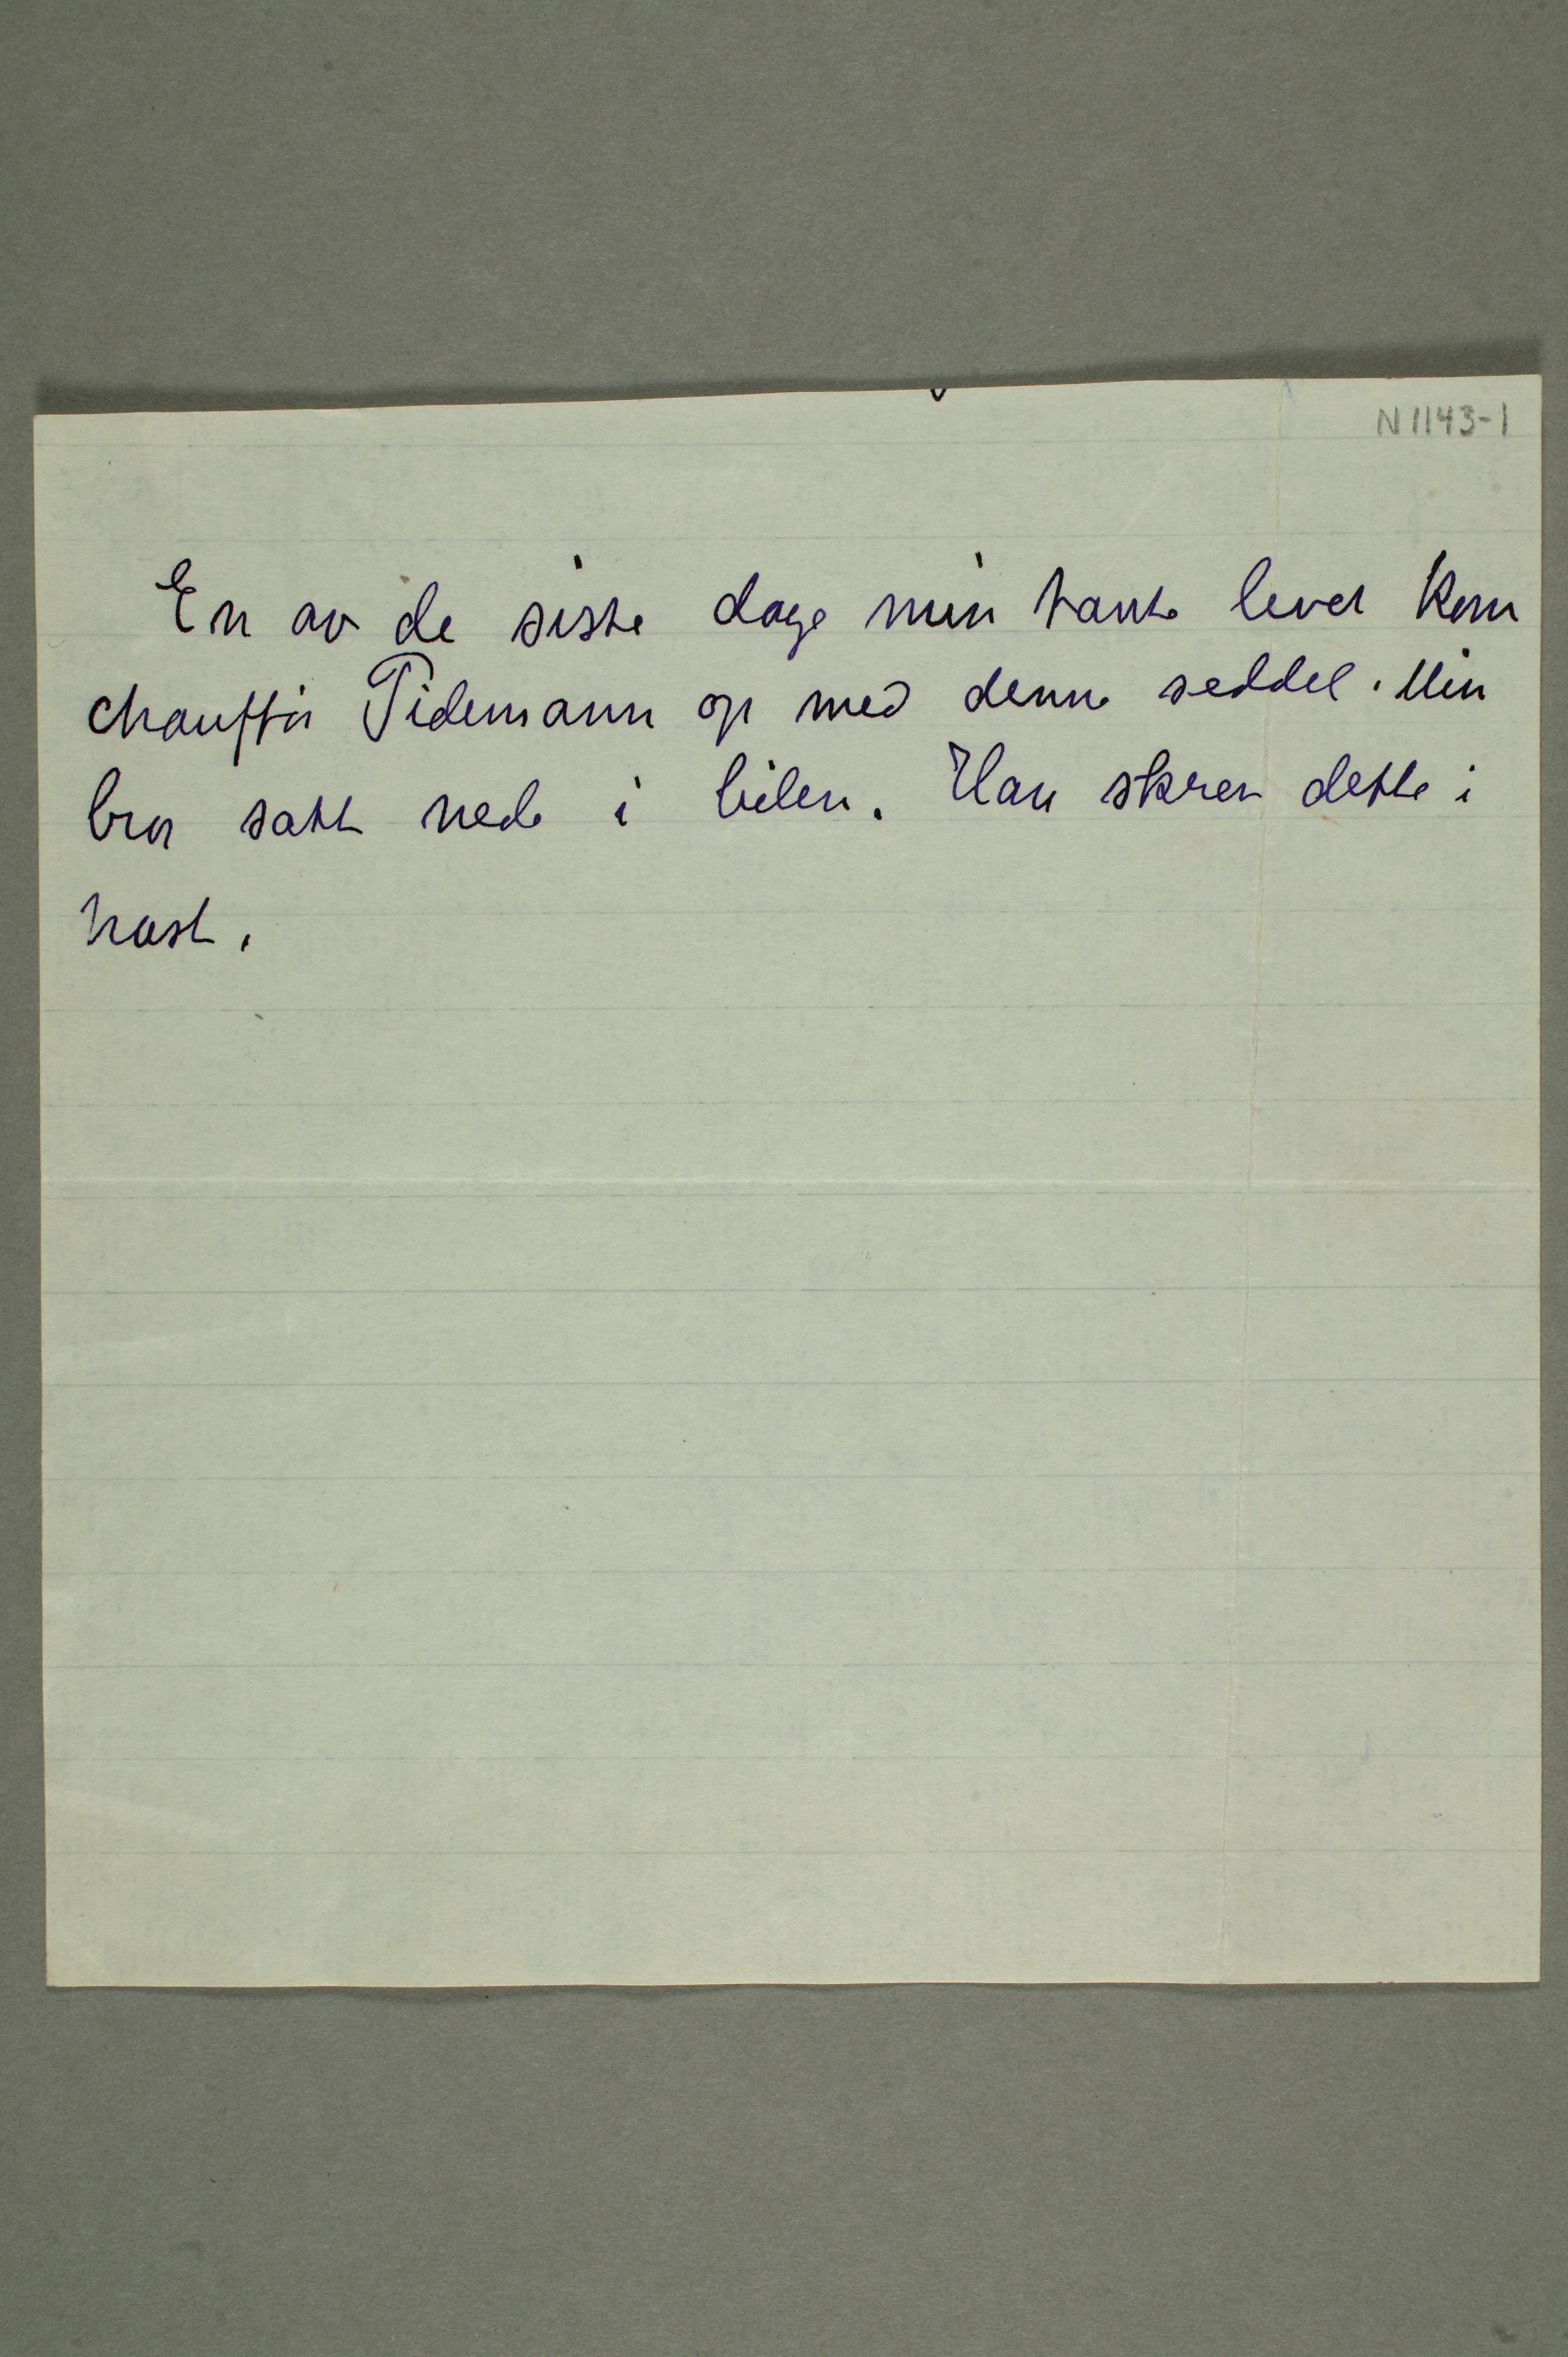 N 1143-1
En av de siste dage min tante levet kom
chauffør Tidemann op med denne seddel. Min
bror satt nede i bilen. Han skrev dette i
hast.